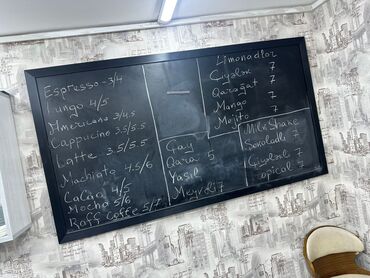 Espresso - 3/4
Lungo 4/5
Americano 3/4.5
Cappucino 3.5/5.5
Latte 3.5/5.5
Machiato 4.5/6
CaCao 4/5
Mocha 5/6
Raff Coffe 5/7
Çay
Qara 5
Yaşıl
Meyvəli 7
Limonadlar
Çiyələk 7
Qarağat 7
Mango 7
Mojito 7
Milk Shake
Şokoladlı 7
Çiyələk 7
Tropical 7